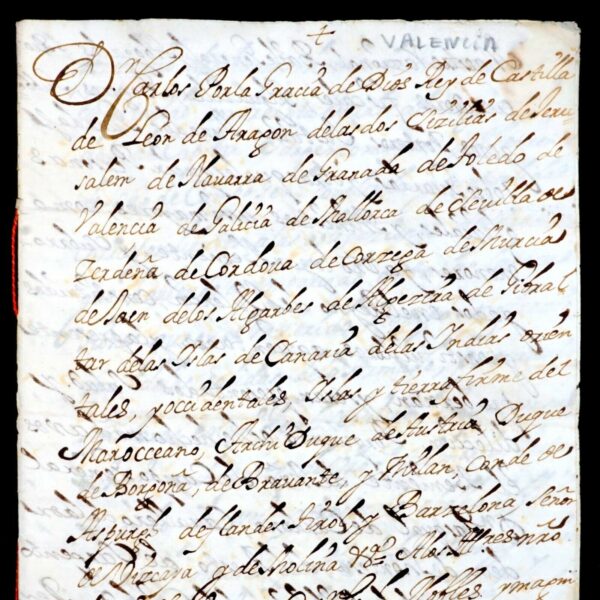 + VALENCIA
D.n Carlos Por la Gracia de Dios Rey de Castilla
de Leon de Aragon de las dos Sizilias de Jeru
salem de Navarra de Granada de Toledo de
Valencia de Galicia de Mallorca de Sevilla de
Zerdeña de Cordova de Corzega de Murcia
de Jaen de los Algarbes de Algezira de Gibral
tar de las Islas de Canaria de las Indias orien
tales, y occidentales, Islas y tierra firme del
Mar occeano, Archi Duque de Austria Duque
de Borgoña, de Bravante, y Milan, conde de
Aspurg de flandes tirol y Barzelona señor
de Vizcaya y de Molina &ª. A los Ill.res nro
Nobles y magni